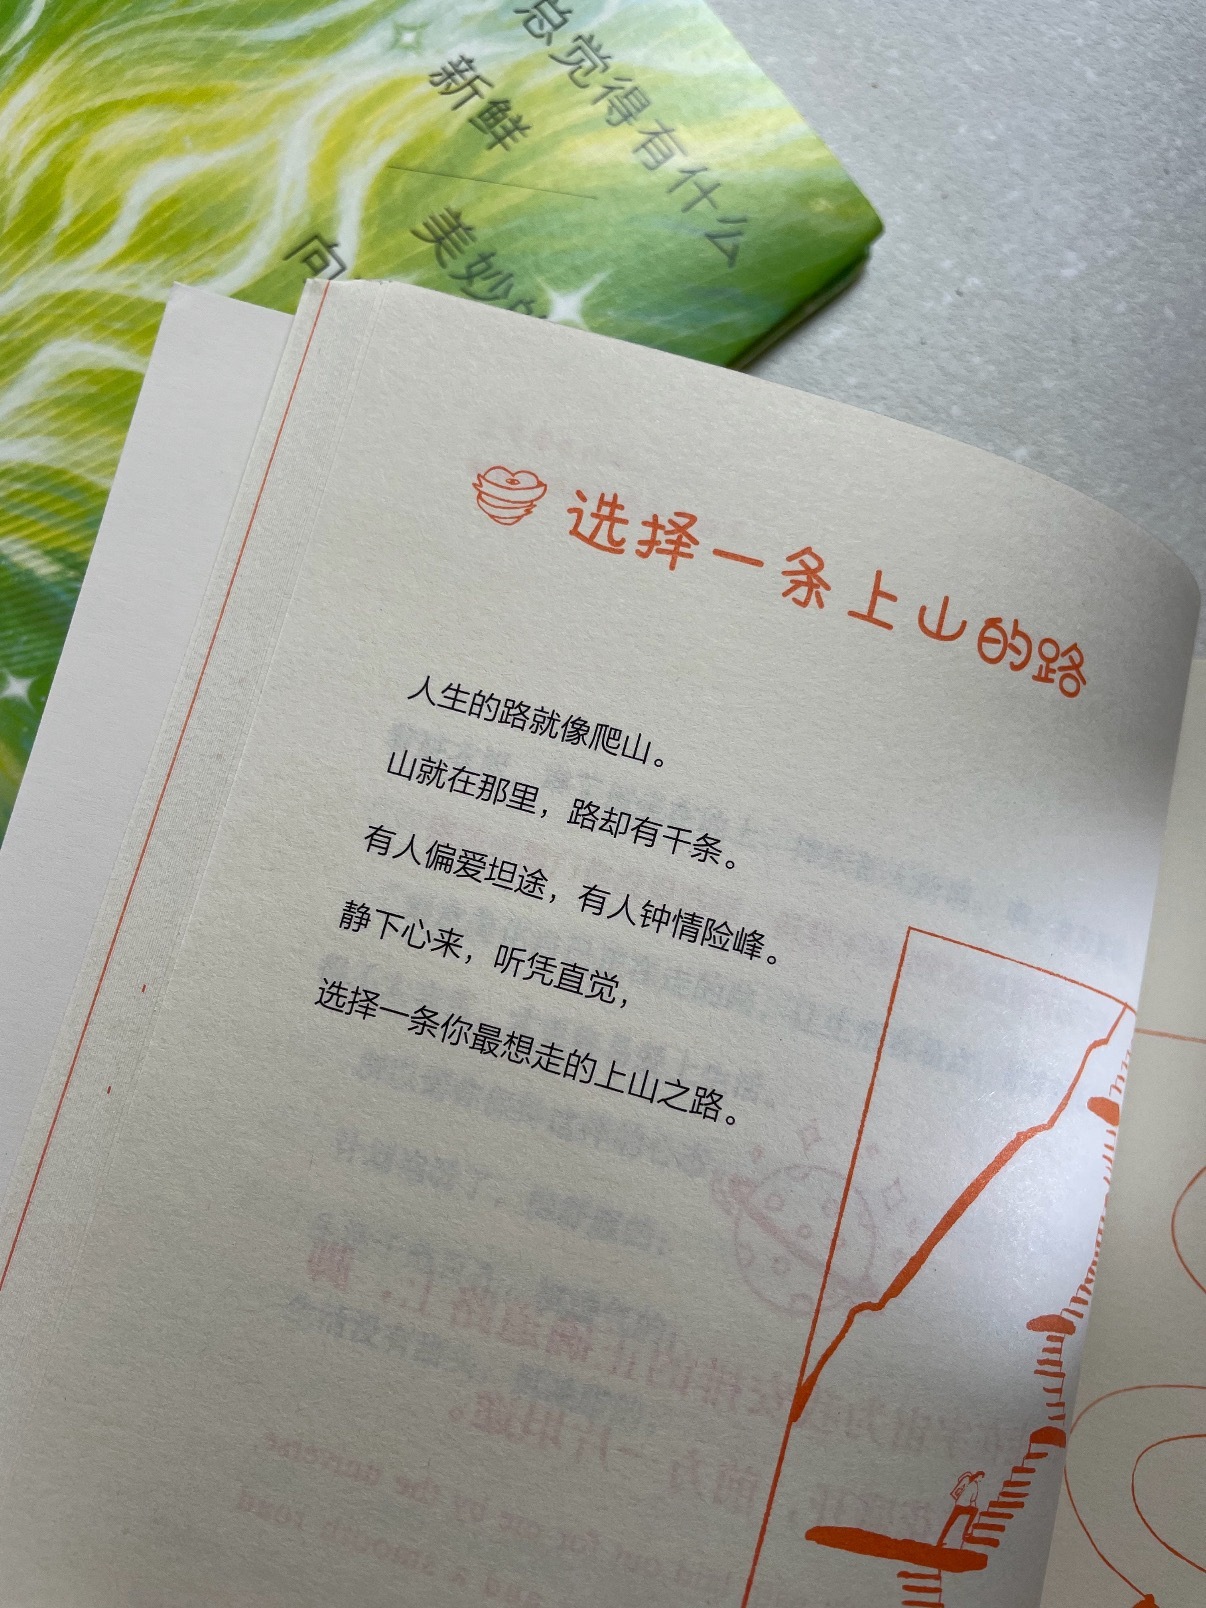 总觉得有什么
新鲜
美妙的
向
选择一条上山的路
人生的路就像爬山。
山就在那里，路却有千条。
有人偏爱坦途，有人钟情险峰。
静下心来，听凭直觉，
选择一条你最想走的上山之路。